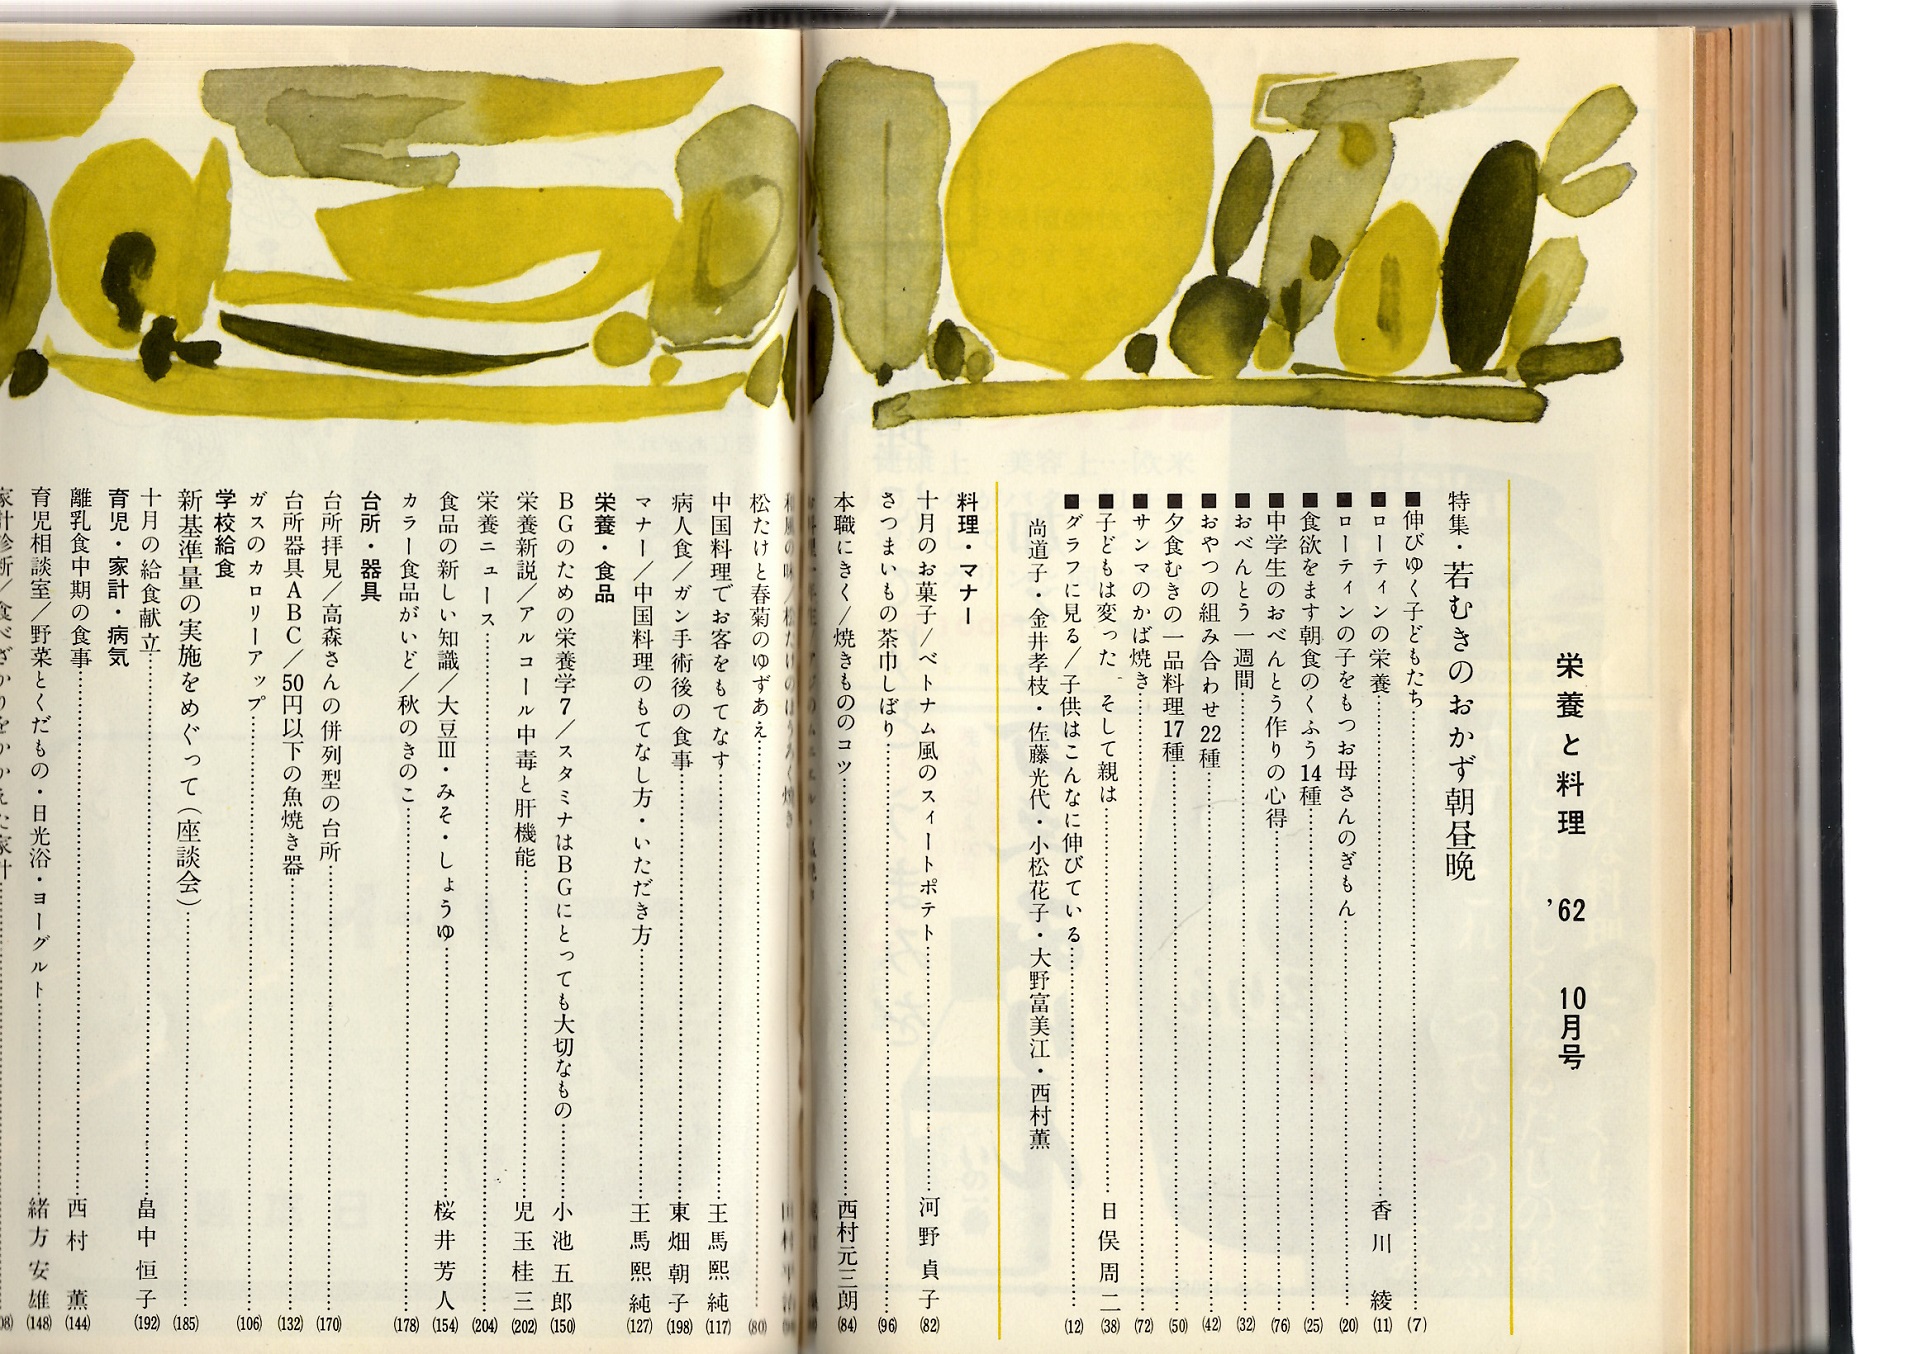 栄養と料理　’62　10月号
特集・若むきのおかず朝昼晩
■伸びゆく子どもたち……(7)
■ローティンの栄養……香川　綾(11)
■ローティンの子をもつお母さんのぎもん……(20)
■食欲をます朝食のくふう14種……(25)
■中学生のおべんとう作りの心得……(76)
■おべんとう一週間……(32)
■おやつの組み合わせ22種……(42)
■夕食むきの一品料理17種……(50)
■サンマのかば焼き……(72)
■子どもは変った　そして親は……日俣周二(38)
■グラフに見る／子供はこんなに伸びている……(12)
尚道子・金井孝枝・佐藤光代・小松花子・大野富美江・西村薫
料理・マナー
十月のお菓子／ベトナム風のスィートポテト……河野貞子(82)
さつまいもの茶巾しぼり……(96)
本職にきく／焼きもののコツ……西村元三朗(84)
松たけと春菊のゆずあえ……(80)
中国料理でお客をもてなす……王馬熙純(117)
病人食／ガン手術後の食事……東畑朝子(198)
マナー／中国料理のもてなし方・いただき方……王馬熙純(127)
栄養・食品
BGのための栄養学7／スタミナはBGにとっても大切なもの……小池五郎(150)
栄養新説／アルコール中毒と肝機能……児玉桂三(202)
栄養ニュース……(204)
食品の新しい知識／大豆Ⅲ・みそ・しょうゆ……桜井芳人(154)
カラー食品がいど／秋のきのこ……(178)
台所・器具
台所拝見／高森さんの併列型の台所……(170)
台所器具ABC／50円以下の魚焼き器……(132)
ガスのカロリーアップ……(106)
学校給食
新基準量の実施をめぐって（座談会）……(185)
十月の給食献立……畠中恒子(192)
育児・家計・病気
離乳食中期の食事……西村　薫(144)
育児相談室／野菜とくだもの・日光浴・ヨーグルト……緒方安雄(148)